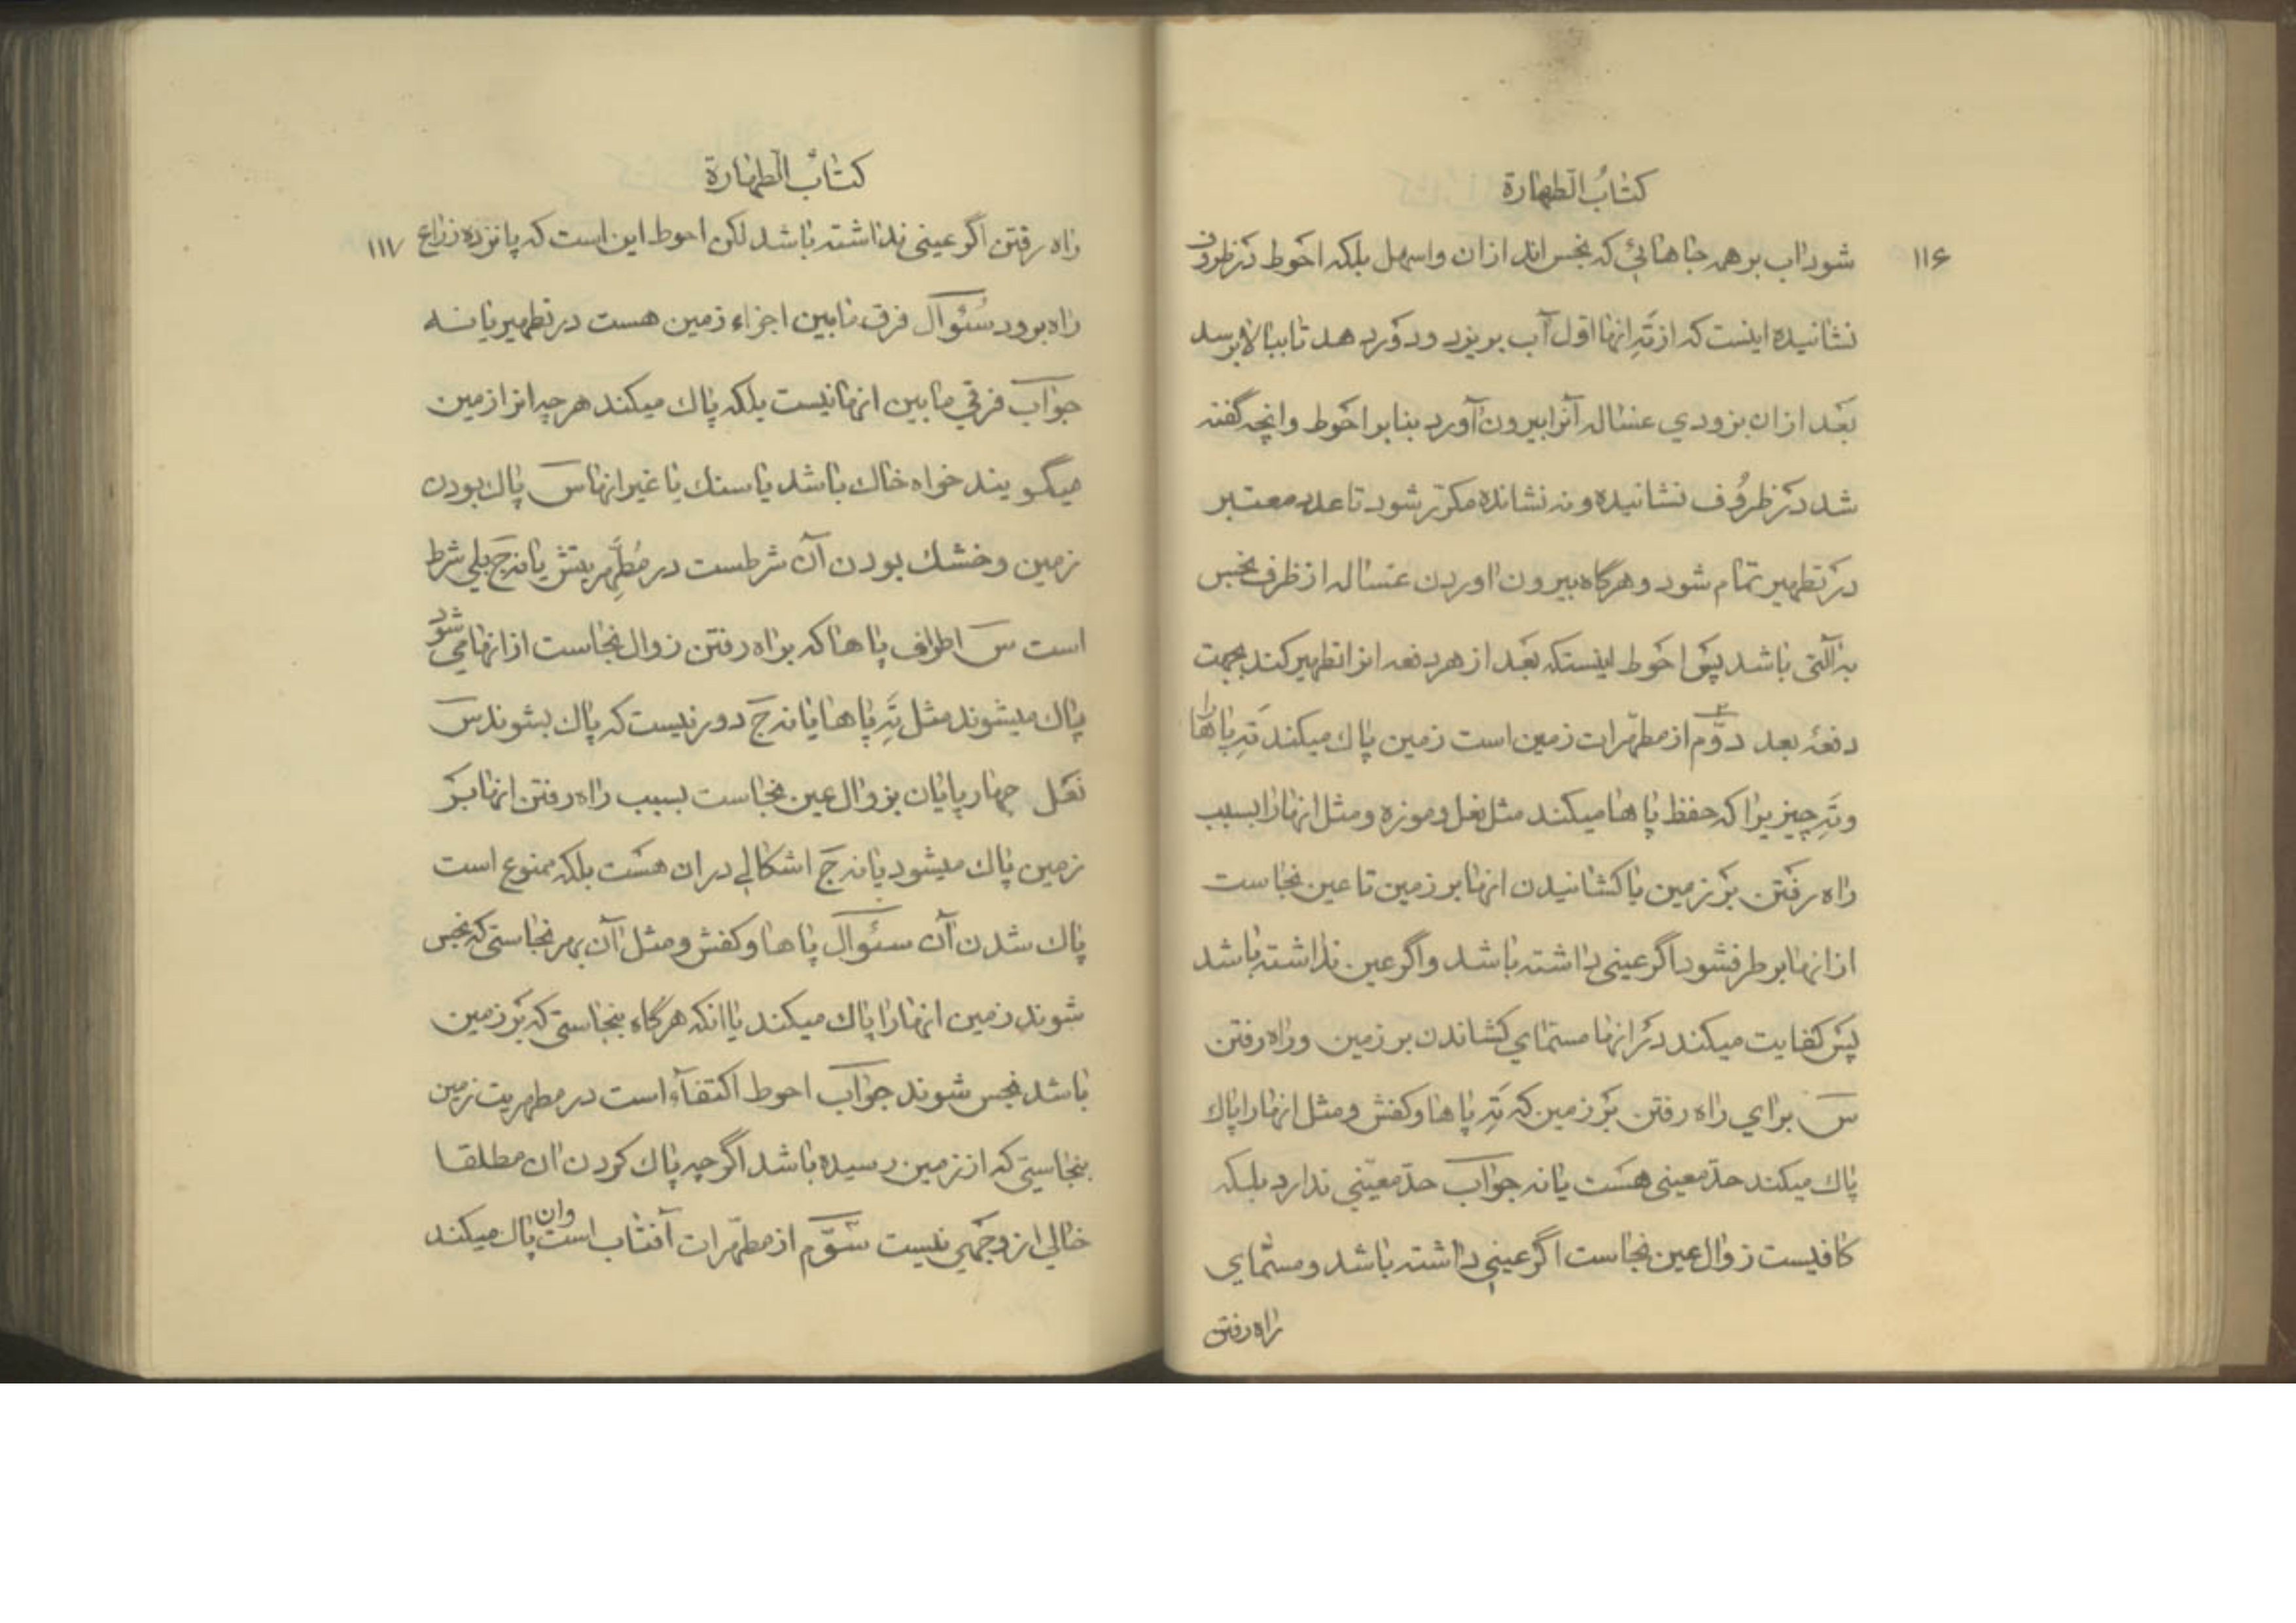 کتاب الطهارة
۱۱۶
شود اب بر همه جاهائی که نجس اند ازان و اسهل بلکه احوط در ظروف
نشانیده اینست که از ته انها اول آب بریزد و دور دهد تا ببالا برسد
بعد ازان بزودي غساله آنرا بیرون آورد بنابر احوط و انچه گفته
شد در ظروف نشانیده و نه نشانده مکرّر شود تا عدد معتبر
در تطهیر تمام شود و هرگاه بیرون اوردن غساله از ظرف نجس
به آلتی باشد پس احوط اینستکه بعد از هر دفعه انرا تطهیر کند بجهت
دفعۀ بعد دوّم از مطهّرات زمین است زمین پاك میکند ته پاها را
و ته چیزیرا که حفظ پاها میکند مثل نعل و موزه و مثل انها را بسبب
راه رفتن بر زمین یا کشانیدن انها بر زمین تا عین نجاست
از انها برطرفشود اگر عینی داشته باشد و اگر عین نداشته باشد
پس کفایت میکند در انها مسمّاي کشاندن بر زمین و راه رفتن
س براي راه رفتن بر زمین که ته پاها و کفش و مثل انها را پاك
پاك میکند حدّ معینی هست یا نه جواب حدّ معیّنی ندارد بلکه
کافیست زوال عین نجاست اگر عینی داشته باشد و مسمّاي
راه رفتن
کتاب الطهارة
۱۱۷
راه رفتن اگر عینی نداشته باشد لکن احوط این است که پانزده زراع
راه برود سُئوال فرق مابین اجزاء زمین هست در تطهیر یا نه
جواب فرقي مابین انها نیست بلکه پاك میکند هرچه انرا زمین
میگویند خواه خاك باشد یا سنك یا غیر انها س پاك بودن
زمین و خشك بودن آن شرطست در مُطَهِّریتش یا نه ج بلی شرط
است س اطراف پاها که براه رفتن زوال نجاست از انها می شود
پاك میشوند مثل ته پاها یا نه ج دور نیست که پاك بشوند س
نعل چهارپایان بزوال عین نجاست بسبب راه رفتن انها بر
زمین پاك میشود یا نه ج اشکالی در ان هست بلکه ممنوع است
پاك شدن آن سئوال پاها و کفش و مثل آن بهر نجاستی که نجس
شوند زمین انها را پاك میکند یا انکه هرگاه بنجاستی که بر زمین
باشد نجس شوند جواب احوط اکتفاء است در مطهریت زمین
بنجاستی که از زمین رسیده باشد اگرچه پاك کردن ان مطلقا
خالی از وجهی نیست سوّم از مطهّرات آفتاب است وان پاك میکند